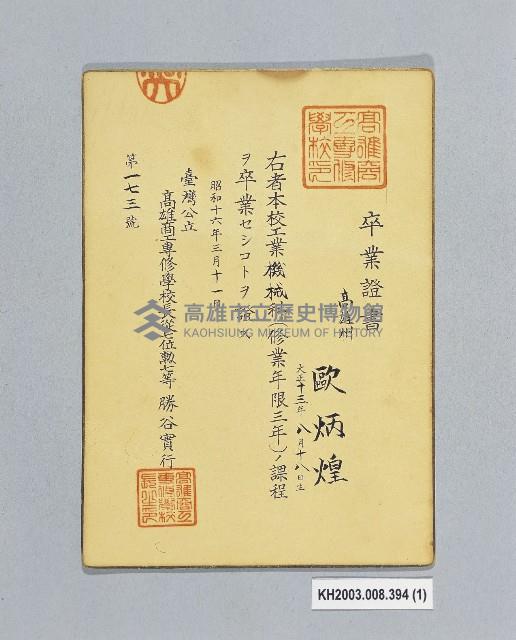 卒業證書
高雄州
歐炳煌
大正十三年八月十八日生
右者本校工業機械科(修業年限三年)ノ課程
ヲ卒業セシコトヲ證ス
昭和十六年三月十一日
臺灣公立
高雄商工專修學校長從七位勲七等 勝谷實行
第一七三號
高雄商工專修學校印
高雄市立歷史博物館
KAOHSIUNG MUSEUM OF HISTORY
KH2003.008.394 (1)